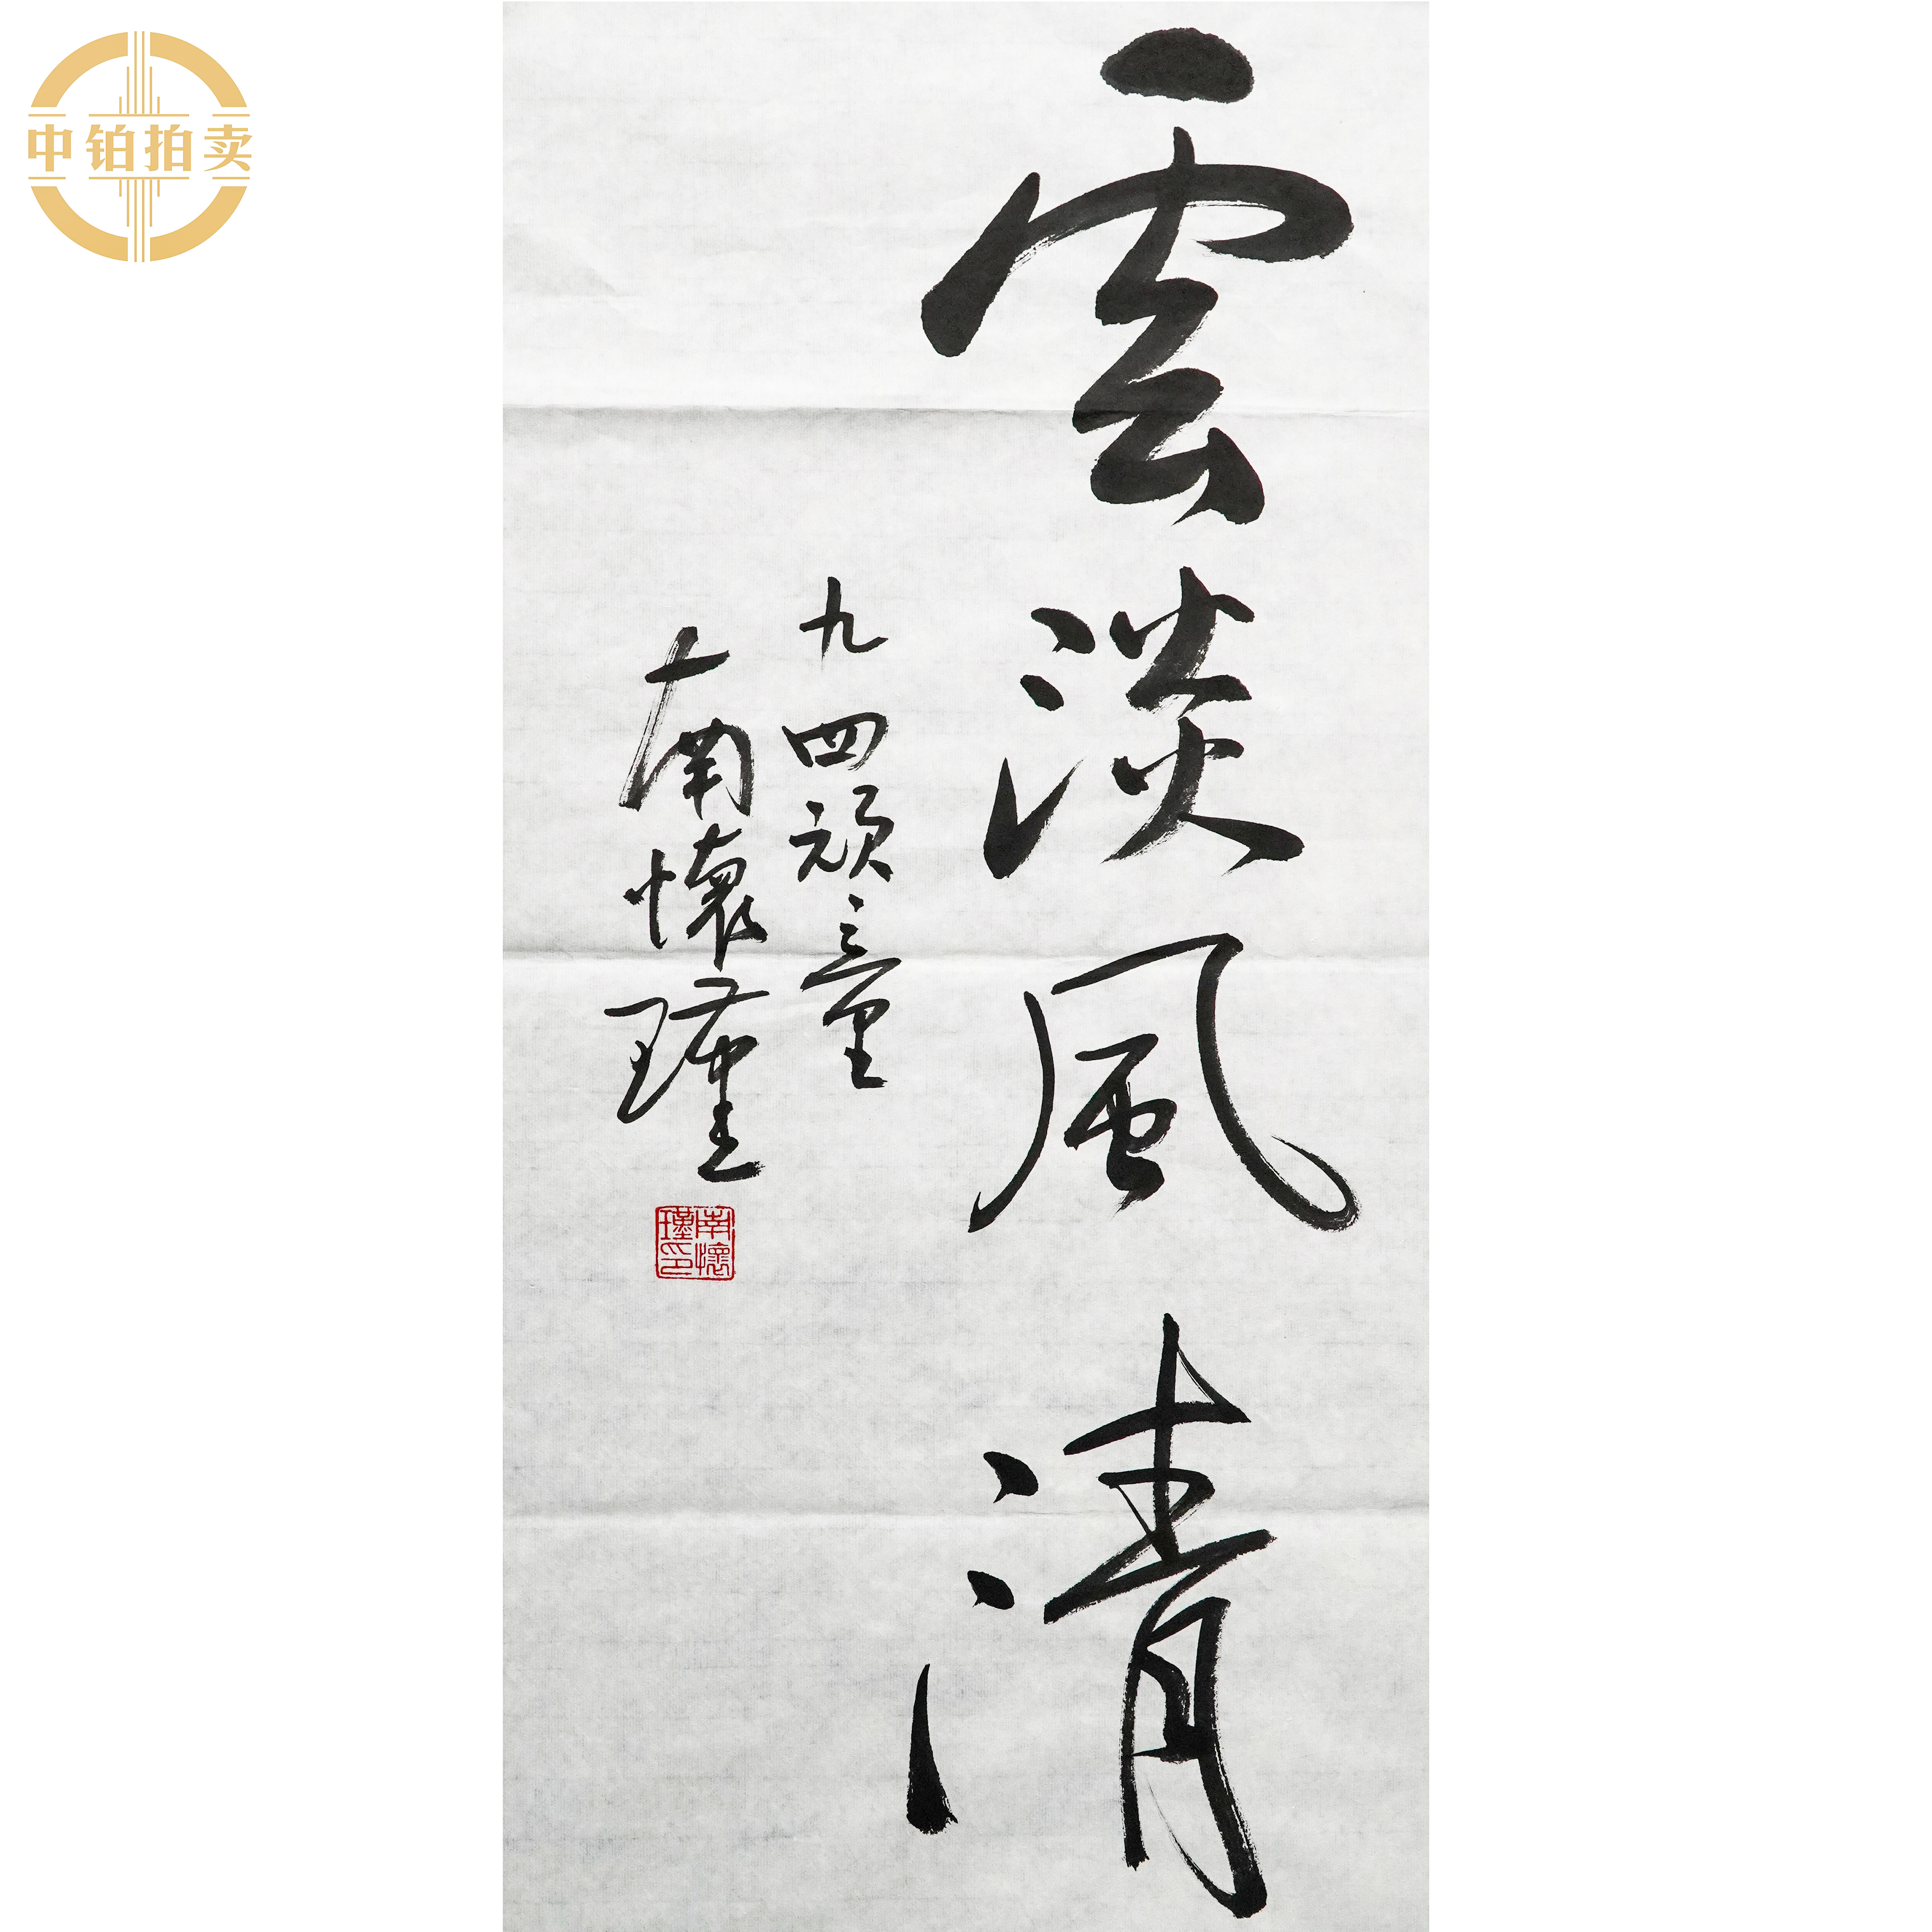 中铂拍卖
雲淡風清
九四頑童
南懷瑾
南懷瑾印